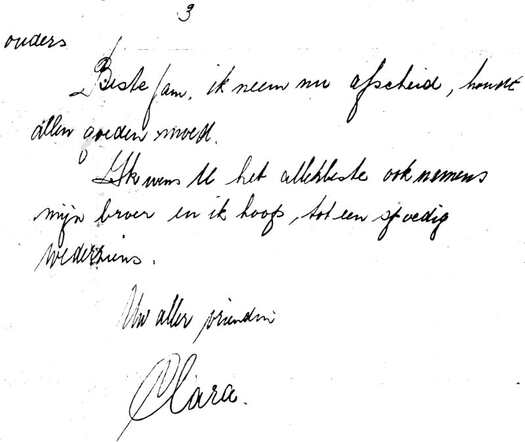 3
ouders
Beste fam. ik neem nu afscheid, houdt
allen goeden moed.
Ik wens U het allerbeste ook namens
mijn broer en ik hoop, tot een spoedig
wederziens.
Uw aller vriendin
Clara.